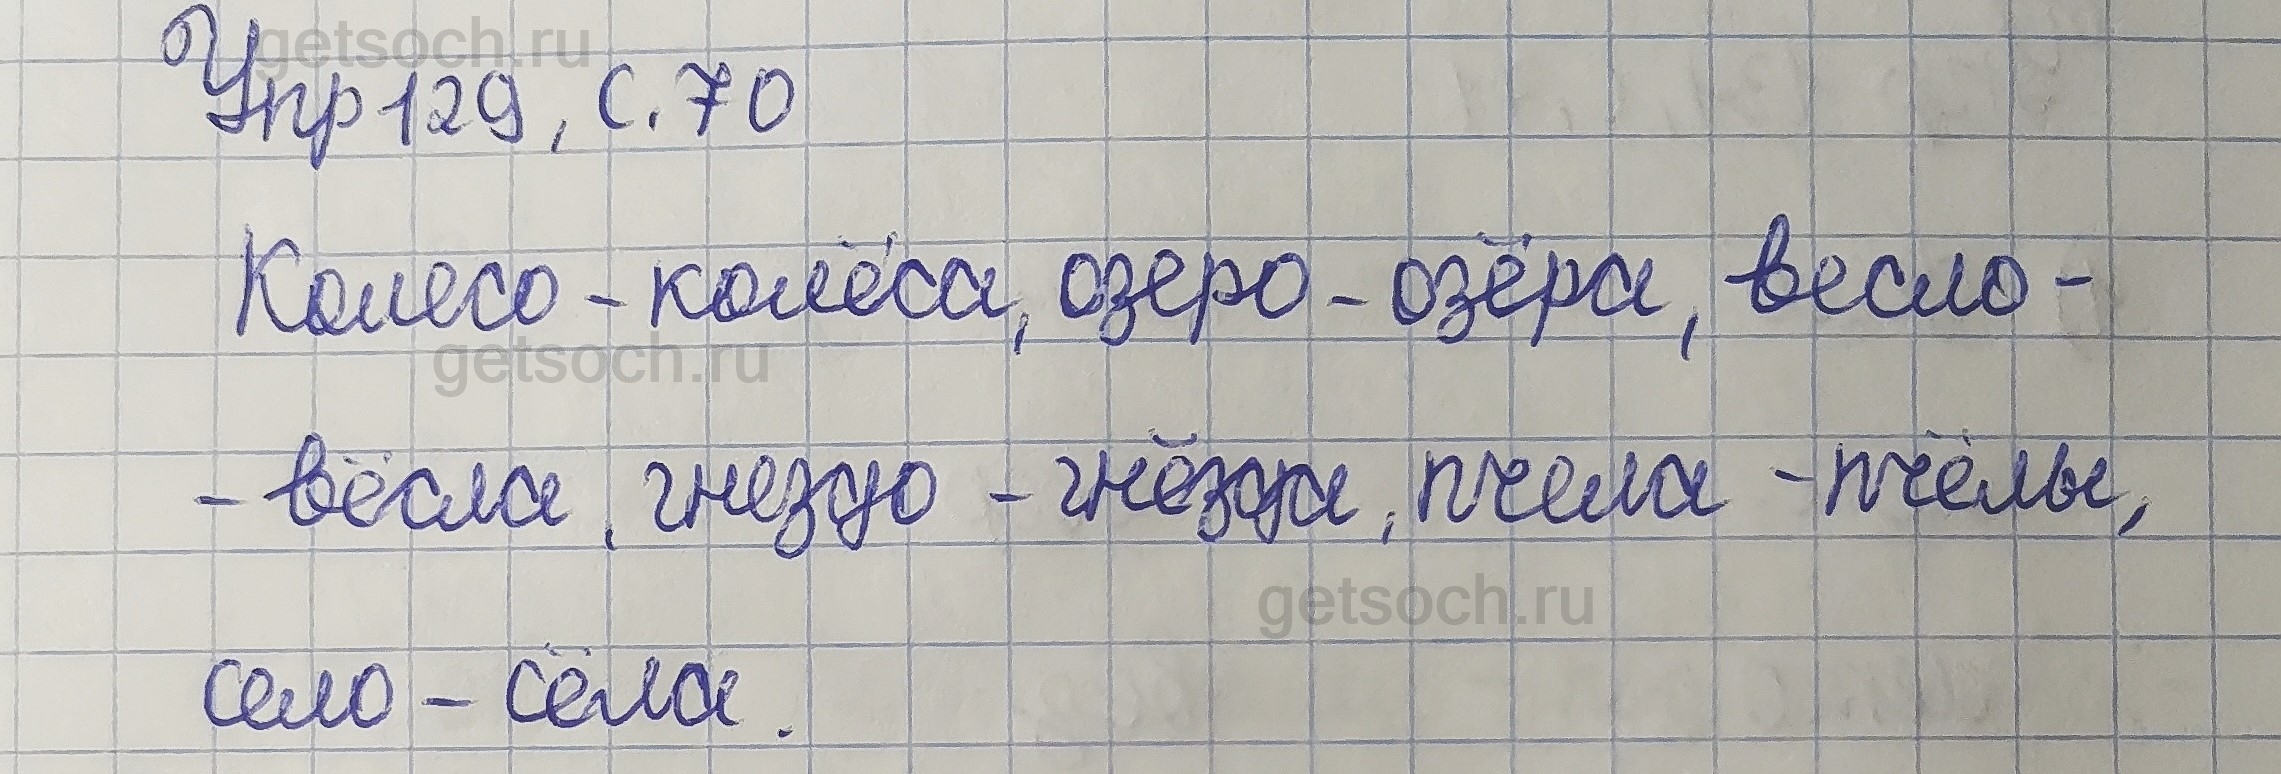 getsoch.ru
Упр 129, с. 70
Колесо - колёса, озеро - озёра, весло -
getsoch.ru
- вёсла, гнездо - гнёзда, пчела - пчёлы,
getsoch.ru
село - сёла.